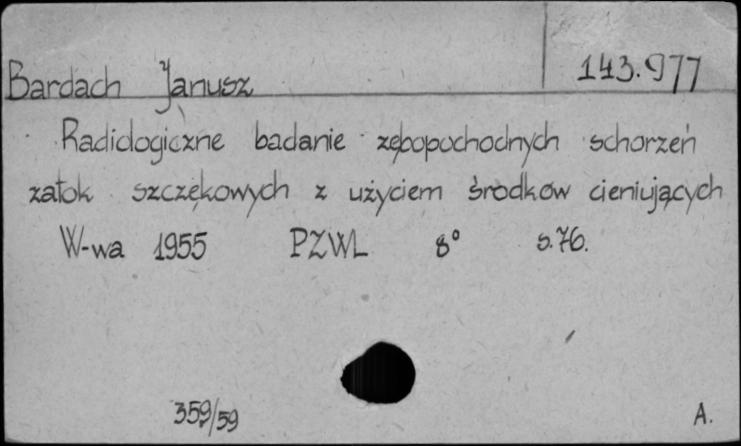 Bardach Janusz 143.977
Radiologiczne badanie zębopochodnych schorzeń
zatok szczękowych z użyciem środków cieniujących
W-wa 1955 PZWL 8° s.76.
359/59 A.